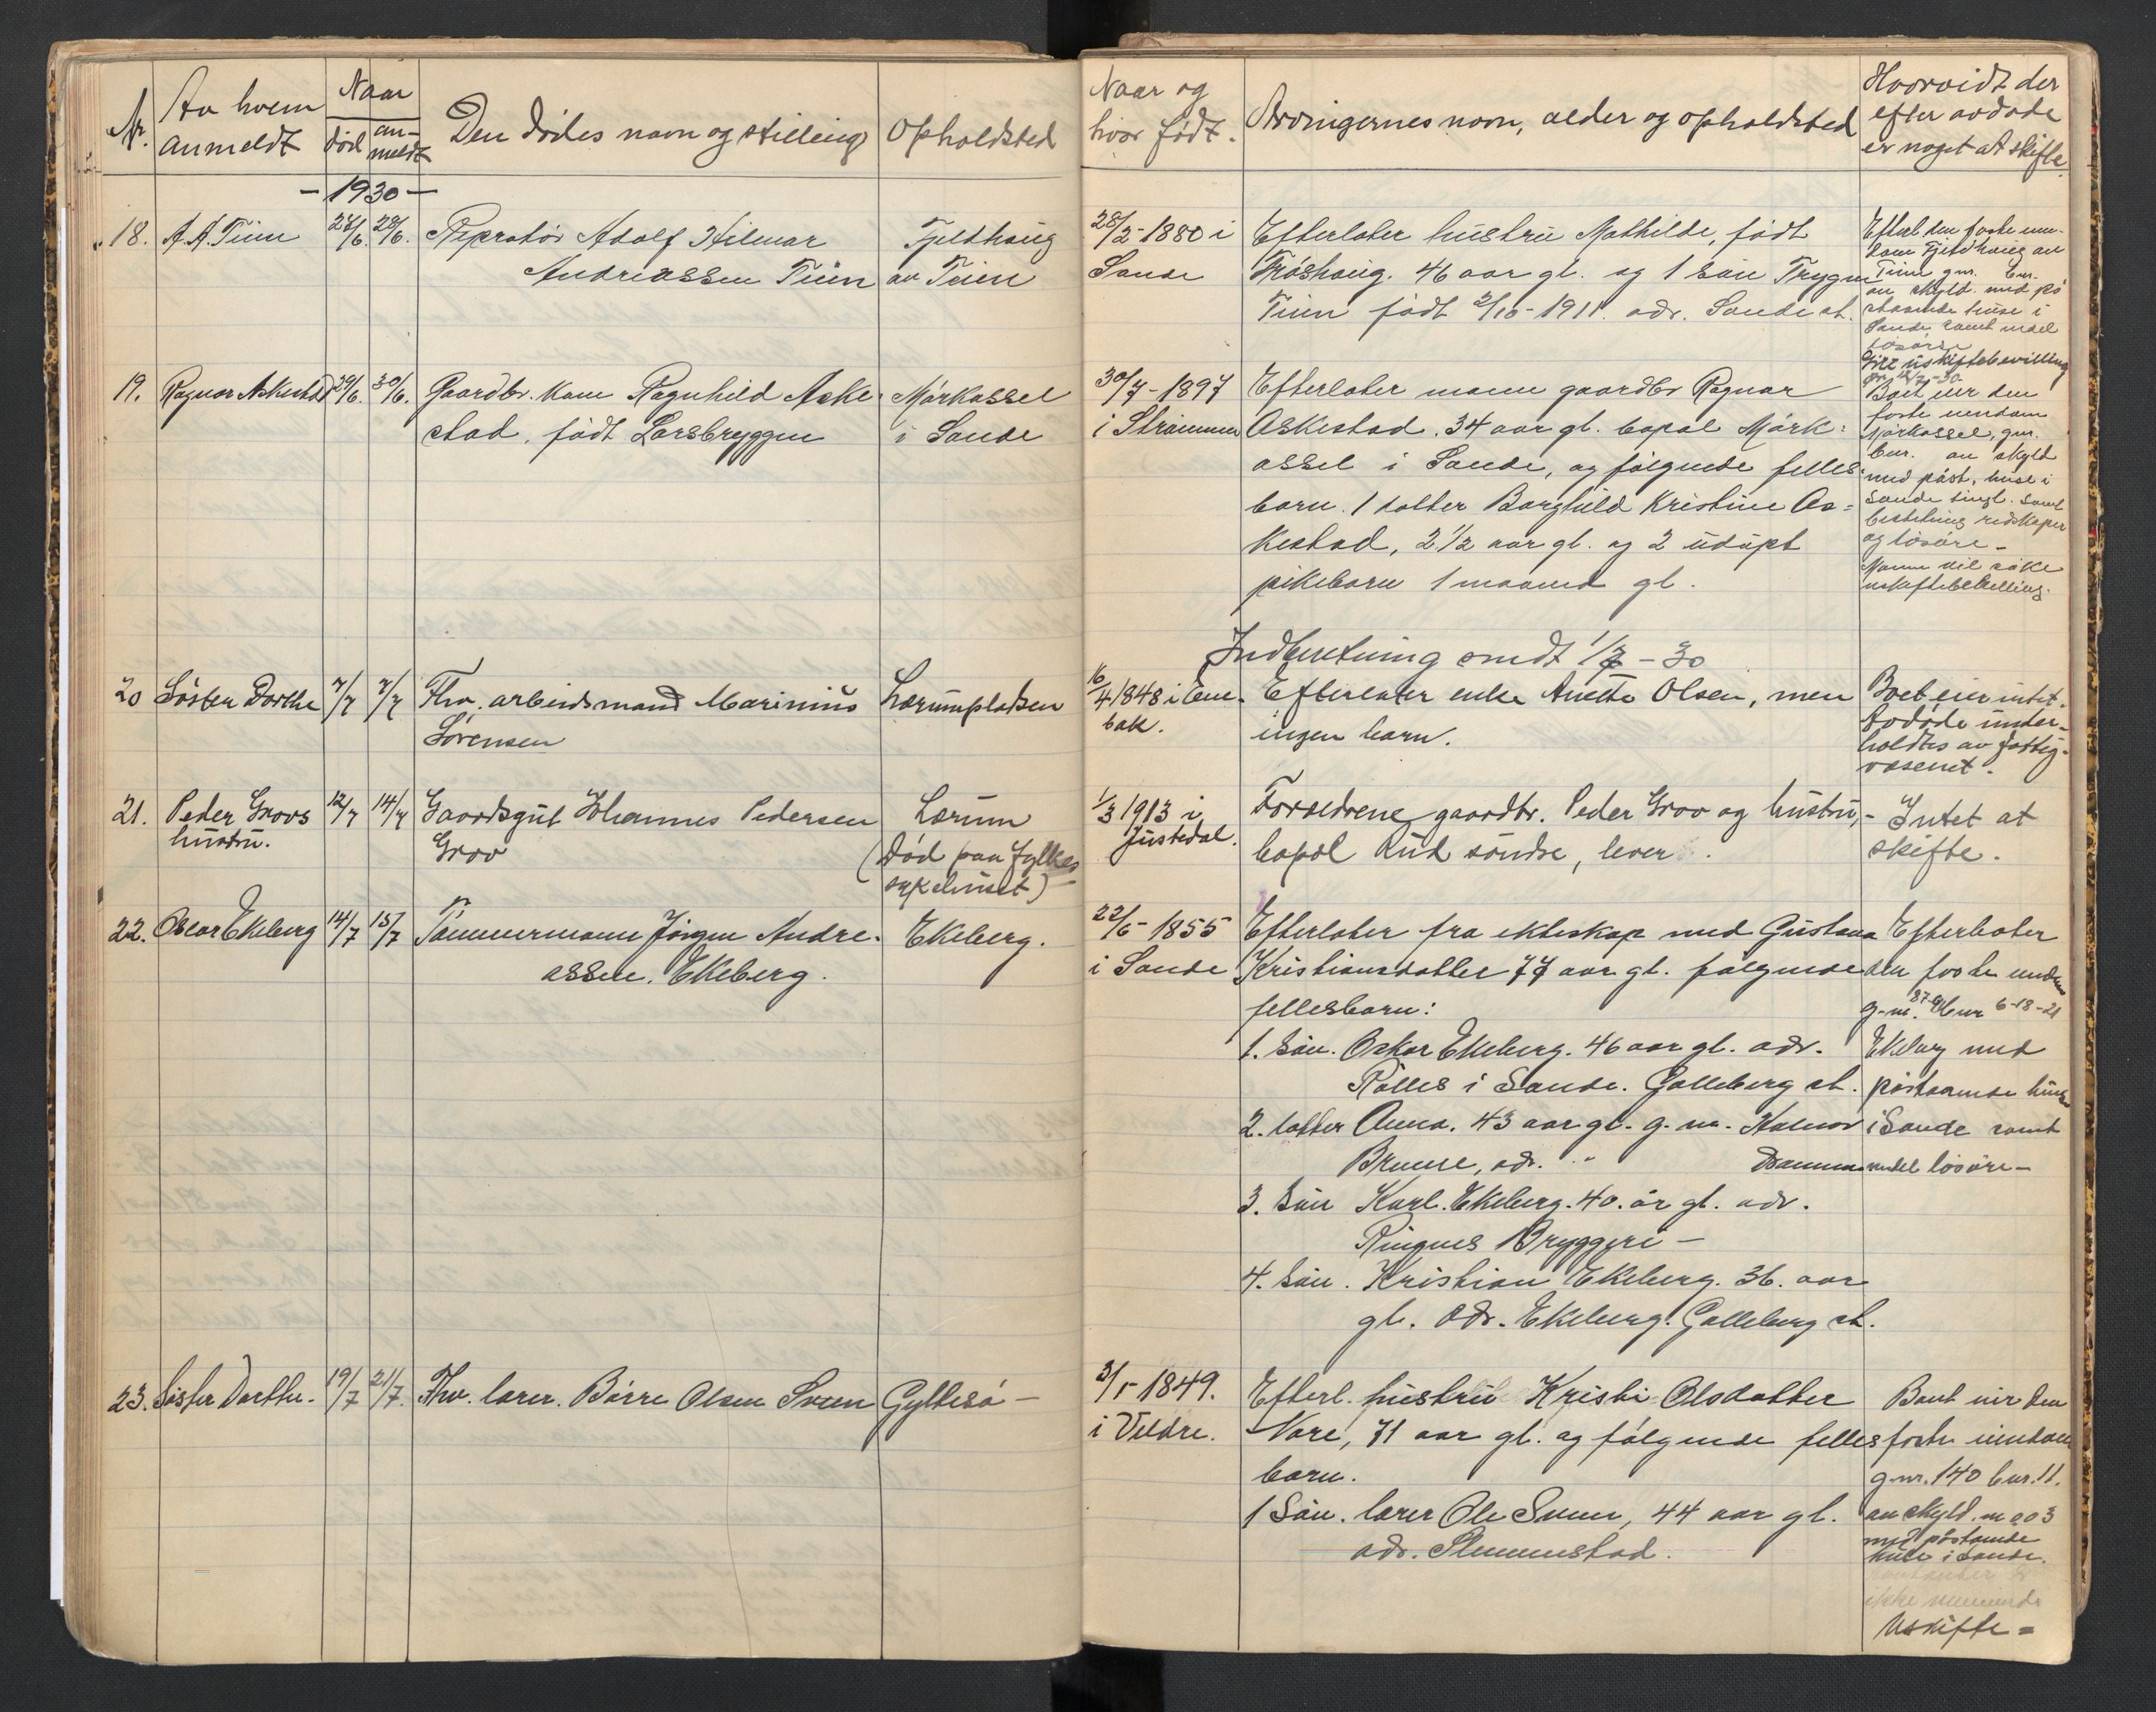 Nr.
Av hvem anmeldt
Naar
død
an-meldt
Den dødes navn og stilling
Opholdsted
Naar og hvor født.
Arvingernes navn, alder og opholdsted
Hvorvidt der efter avdøde er noget at skifte
- 1930 -
18. A. A. Tuen 28/6.
Adolf Hilmar
Andreassen Tuen
Fjeldhaug
av Tuen
28/2 - 1880 i
Sande
Efterlater hustru Mathilde, født
Frøshaug. 46 aar gl. og 1 søn Trygve
Tuen født 2/10 - 1911. adr. Sande st.
Efterl. den faste eien-
dom Fjeldhaug av
Tuen gnr. bnr.
av skyld med på
staaende huse i
Sande samt endel
løsøre
19. Ragnar Askestad 29/6. 30/6.
Gaardbr. kone Ragnhild Aske-
stad, født Larsbryggen
Mørkassel
i Sande
30/7 - 1897
i Strømmen
Efterlater mann gaardbr Ragnar
Askestad. 34 aar gl. bopæl Mørk=
assel i Sande, og følgende felles-
barn. 1 datter Borghild Kristine As=
kestad, 2 1/2 aar gl. og 2 udøpt
pikebarn 1 maaned gl.
uskiftebevilling
Boet eier den
faste eiendom
Mørkassel, gnr.
bnr. av skyld
med påst. huse i
Sande samt
besetning redskaper
og løsøre -
Mann vil søke
uskiftebevilling.
Indberetning sendt 1/7 - 30
20 Søster Dorthe 7/7 7/7
Fhv. arbeidsmand Marinius
Sørensen
Lærumpladsen
16/4 1848 i Ene-
bak.
Efterlater enke Anette Olsen, men
ingen barn.
Boet eier intet.
Avdøde under-
holdtes av fattig-
væsenet.
21. Peder Grovs
hustru.
12/7 14/7
Gaardsgut Johannes Pedersen
Grov
Lærum
(Død paa Fylkes
sykehuset)
1/3 1913 i
Justedal.
Forældrene gaardbr. Peder Grov og hustru,
bopæl Rud søndre, lever.
- Intet at
skifte.
22. Oscar Ekeberg 14/7 15/7
Tømmermann Jørgen Andre-
assen. Ekeberg.
Ekeberg.
22/5 - 1855
i Sande
Efterlater fra ekteskap med Gustava
Kristiansdatter 77 aar gl. følgende
fellesbarn:
1. Søn. Oskar Ekeberg. 46 aar gl. adr.
Rølles i Sande. Galleberg st.
2. datter Anna. 43 aar gl. g. m.
adr. Drammen
3. Søn Karl. Ekeberg. 40. år gl. adr.
Ringnes Bryggeri -
4. Søn. Kristian Ekeberg. 36. aar
gl. adr. Ekeberg. Galleberg st.
Efterlater
den faste eiendom
g-nr. 87 bnr 6-18-21
Ekeberg med
påstaaende huse
i Sande samt
endel løsøre -
23. Søster Dorthe. 19/7 21/7.
Fhv. lærer. Børre Olsen Sveen
Gyltesø -
3/1 - 1849.
i Veldre.
Efterl. hustru Kristi Olsdatter
Nore, 71 aar gl. og følgende felles
barn.
1 Søn. lærer Ole Sveen, 44 aar gl.
adr. Slemmestad.
Boet eier den
faste eiendom
g-nr. 140 bnr. 11.
av skyld. m 0.03
med påstaaende
huse i Sande.
ikke
Uskifte =